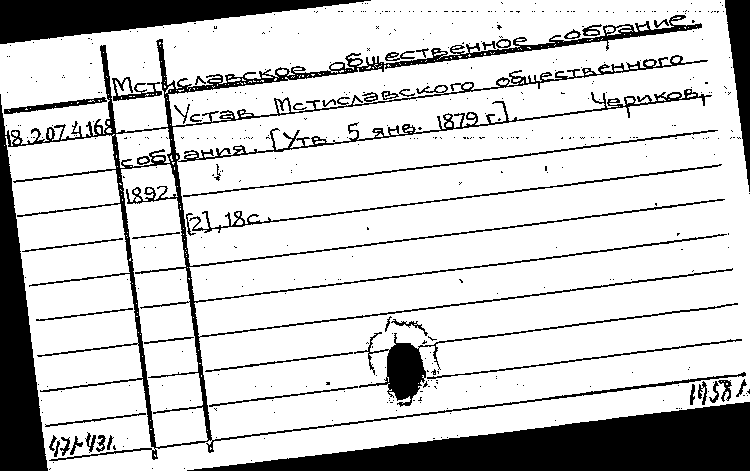 Мстиславское общественное собрание.
18.207.4.168. Устав Мстиславского общественного
собрания. [Утв. 5 янв. 1879 г.]. Чериков,
1892.
[2], 18с.
1958 г.